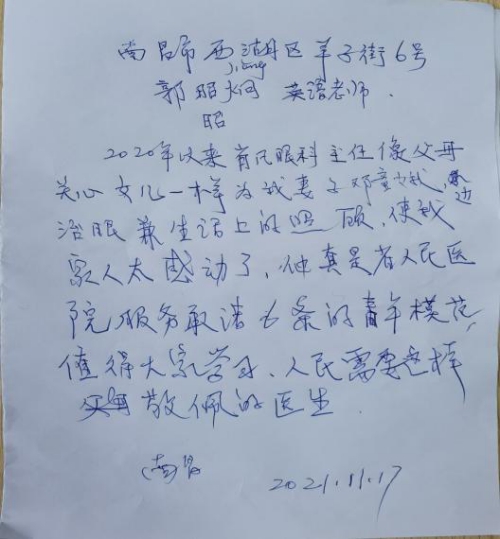 南昌市西湖区羊子街6号
jiong
郭昭 英语老师.
昭
2020年以来 眼科主任像父母
关心女儿一样为我妻子邓 边
治眼兼生活上的照顾,使我
家人太感动了,他真是省人民医
院服务 条的青年模范,
值得大家学习、人民需要这样
敬佩的医生
南昌
2021.11.17